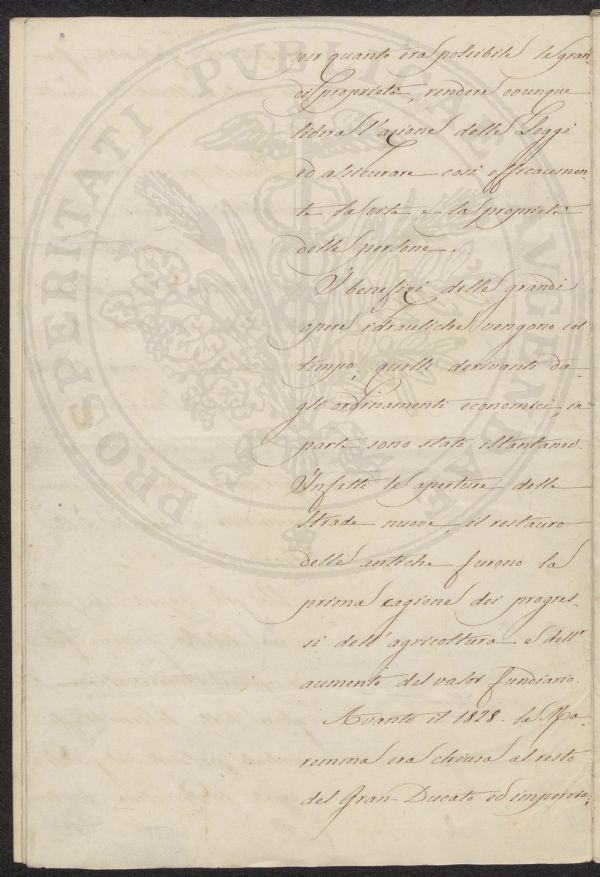 per quanto era possibile le gran-
di proprietà, rendere ovunque
libera l'azione delle Leggi
ed assicurare così efficacemen-
te la vita e la proprietà
delle persone.
I benefizi delle grandi
opere idrauliche vengono col
tempo; quelli derivanti da-
gli ordinamenti economici in
parte sono stati istantanei.
Infatti le aperture delle
Strade nuove, il restauro
delle antiche furono la
prima cagione dei progres-
si dell'agricoltura e dell'
aumento del valor fundiario.
Avanti il 1828. la Ma-
remma era chiusa al resto
del Gran-Ducato ed impervia;
PROSPERITATI PVBLICAE AVGENDAE